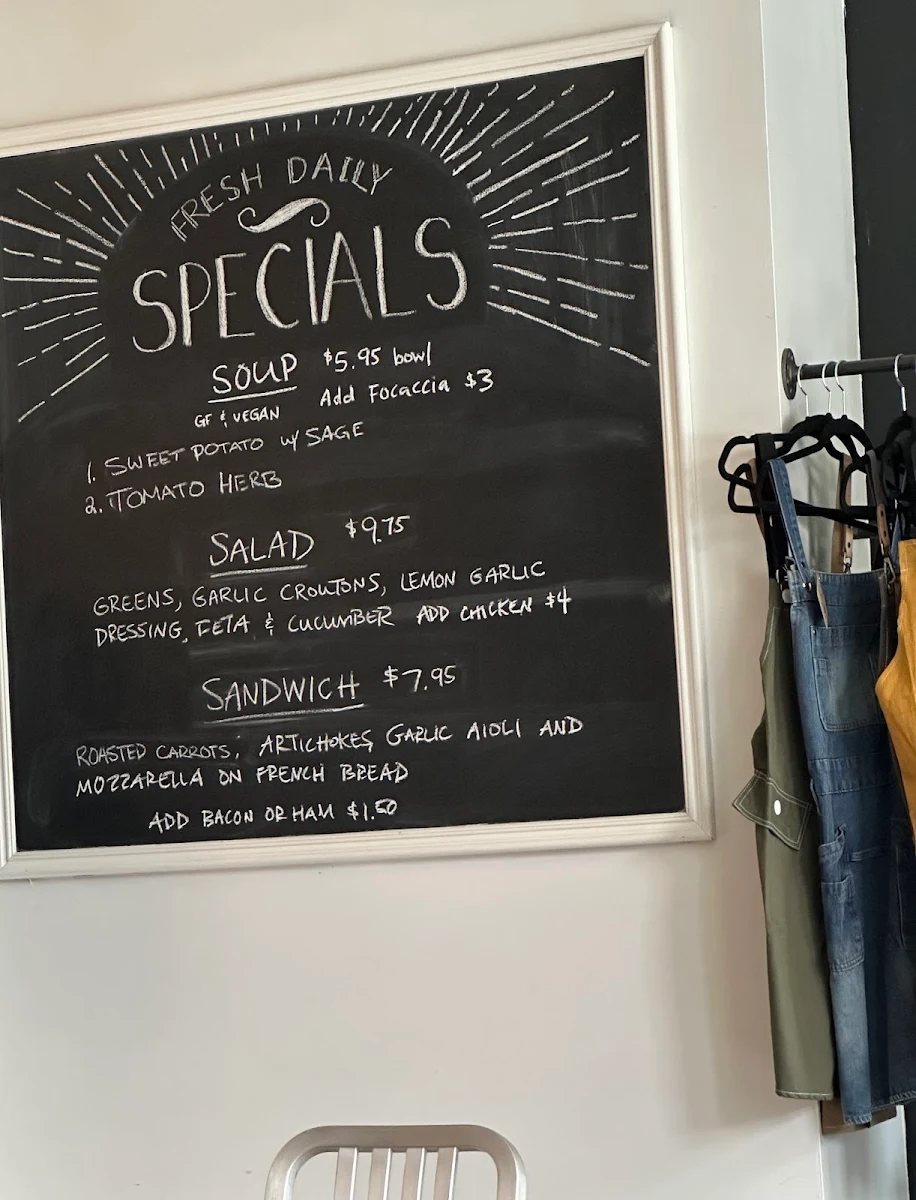 FRESH DAILY
SPECIALS
SOUP $5.95 bowl
GF & VEGAN Add Focaccia $3
1. SWEET POTATO w/ SAGE
2. TOMATO HERB
SALAD $9.75
GREENS, GARLIC CROUTONS, LEMON GARLIC
DRESSING, FETA & CUCUMBER ADD CHICKEN $4
SANDWICH $7.95
ROASTED CARROTS, ARTICHOKES, GARLIC AIOLI AND
MOZZARELLA ON FRENCH BREAD
ADD BACON OR HAM $1.50